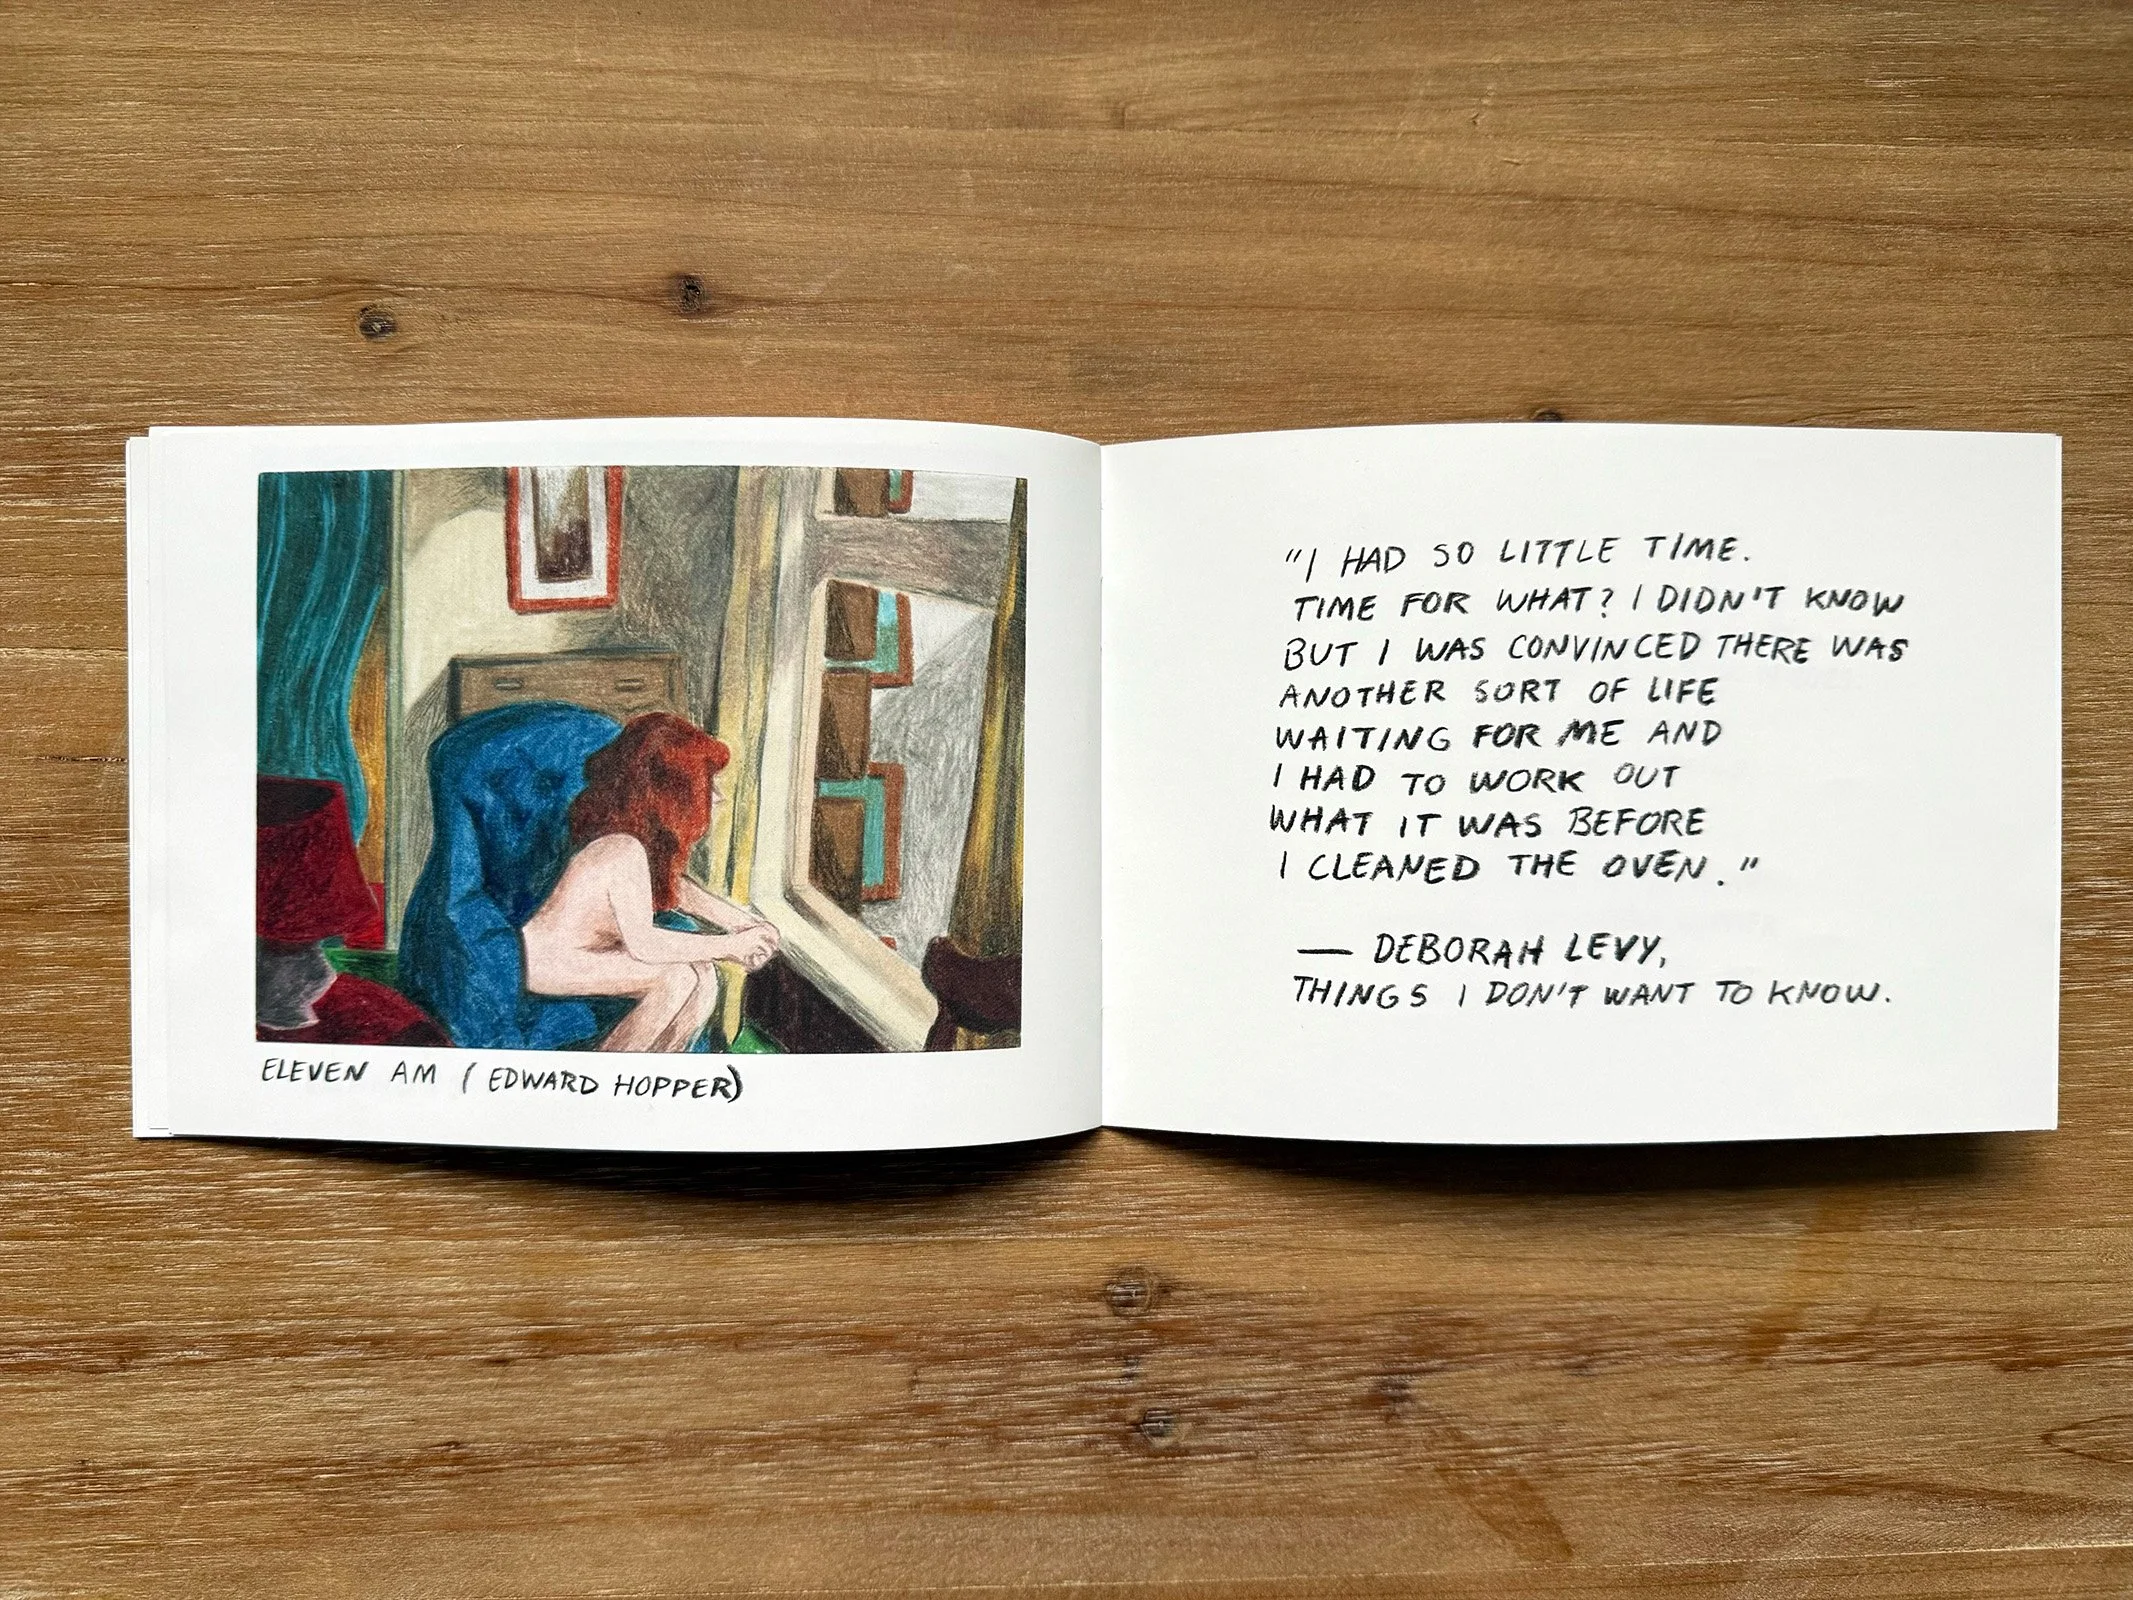 ELEVEN AM (EDWARD HOPPER)
"I HAD SO LITTLE TIME.
TIME FOR WHAT? I DIDN'T KNOW
BUT I WAS CONVINCED THERE WAS
ANOTHER SORT OF LIFE
WAITING FOR ME AND
I HAD TO WORK OUT
WHAT IT WAS BEFORE
I CLEANED THE OVEN."
— DEBORAH LEVY,
THINGS I DON'T WANT TO KNOW.